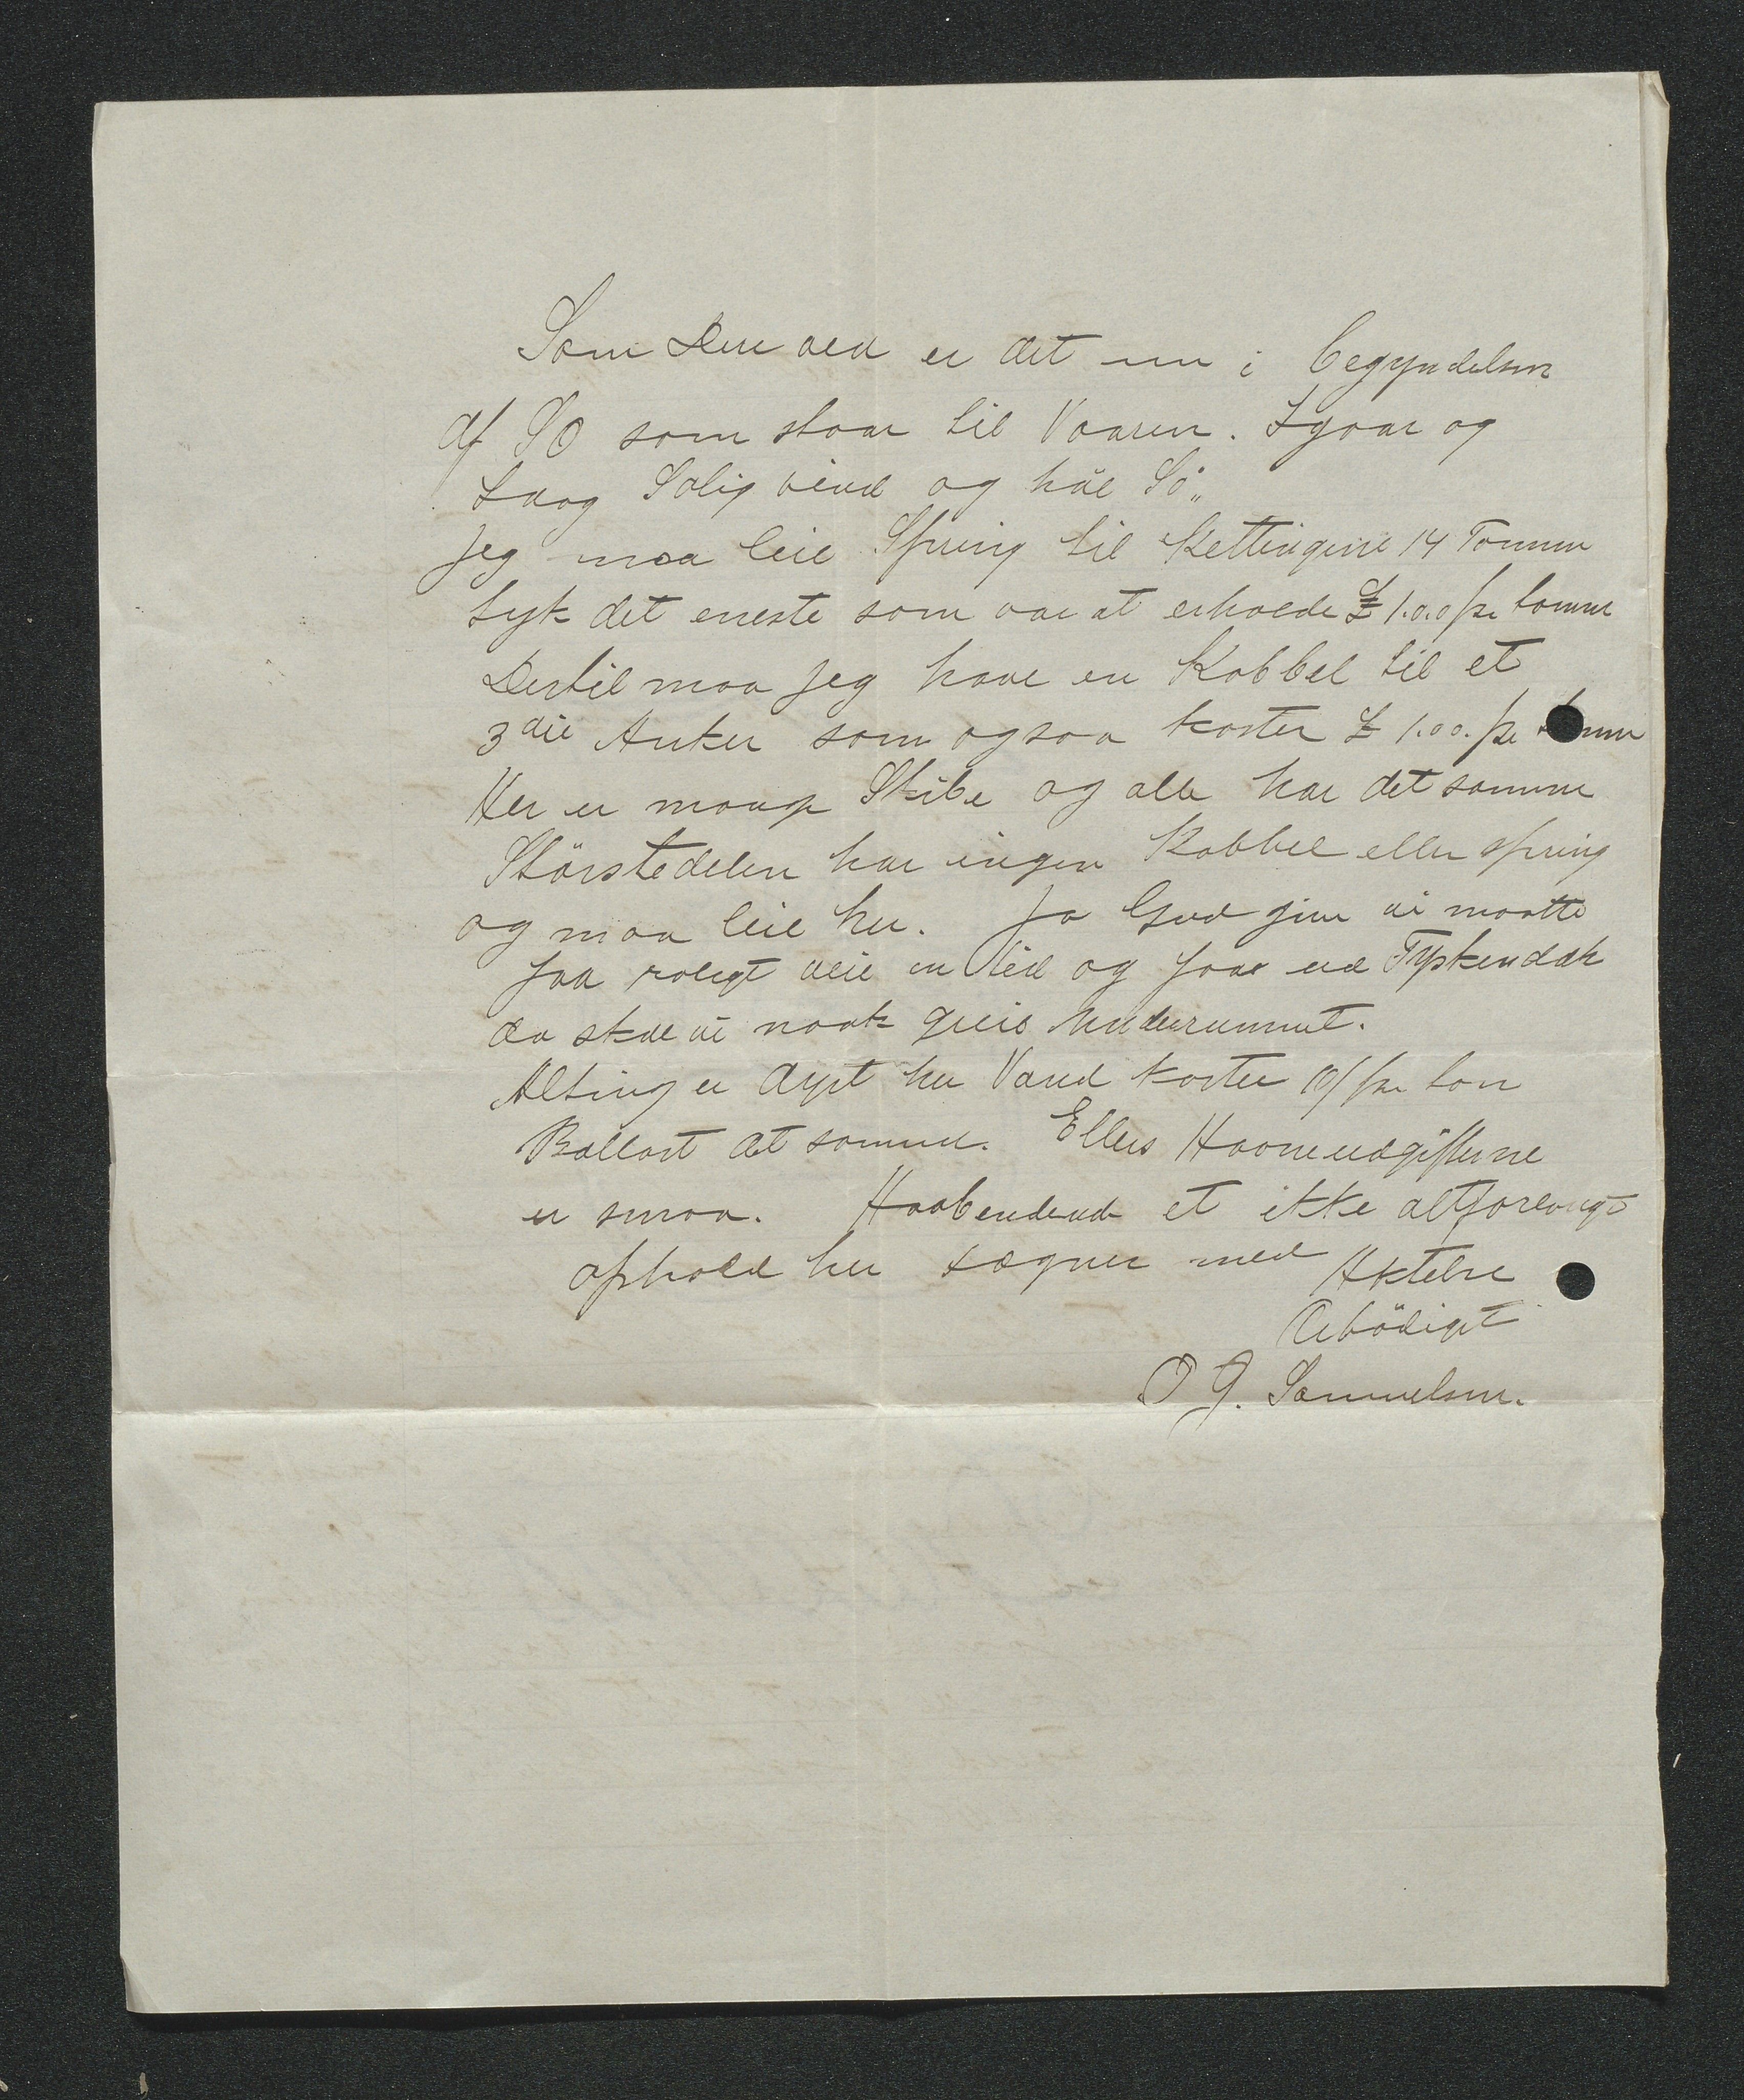 Som Dere ved er det nu i begyndelsen
af SO som staar til Vaaren. Igaar og
Idag Solig vind og hül Sö„
Jeg maa leie Spring til Kettingene 14 Tommer
tyk det eneste som var at erholde £ 1.0.0 pr tomme
Dertil maa jeg have en Kabbel til et
3die Anker som ogsaa koster £ 1.00. pr tomme
Her er mange Skibe og alle har det samme
Störstedelen har ingen Kabbel eller spring
og maa leie her. Ja Gud give vi maatte
faa roligt veir en tid og faa ud
da skal vi nok greie
Alting er dyrt her Vand koster 10/ pr ton
Ballast det samme. Ellers Havneudgifterne
er smaa. Haabendende et ikke altforlangt
ophold her tegner med Aktelse
Ærbödigst
O J. Samuelsen.